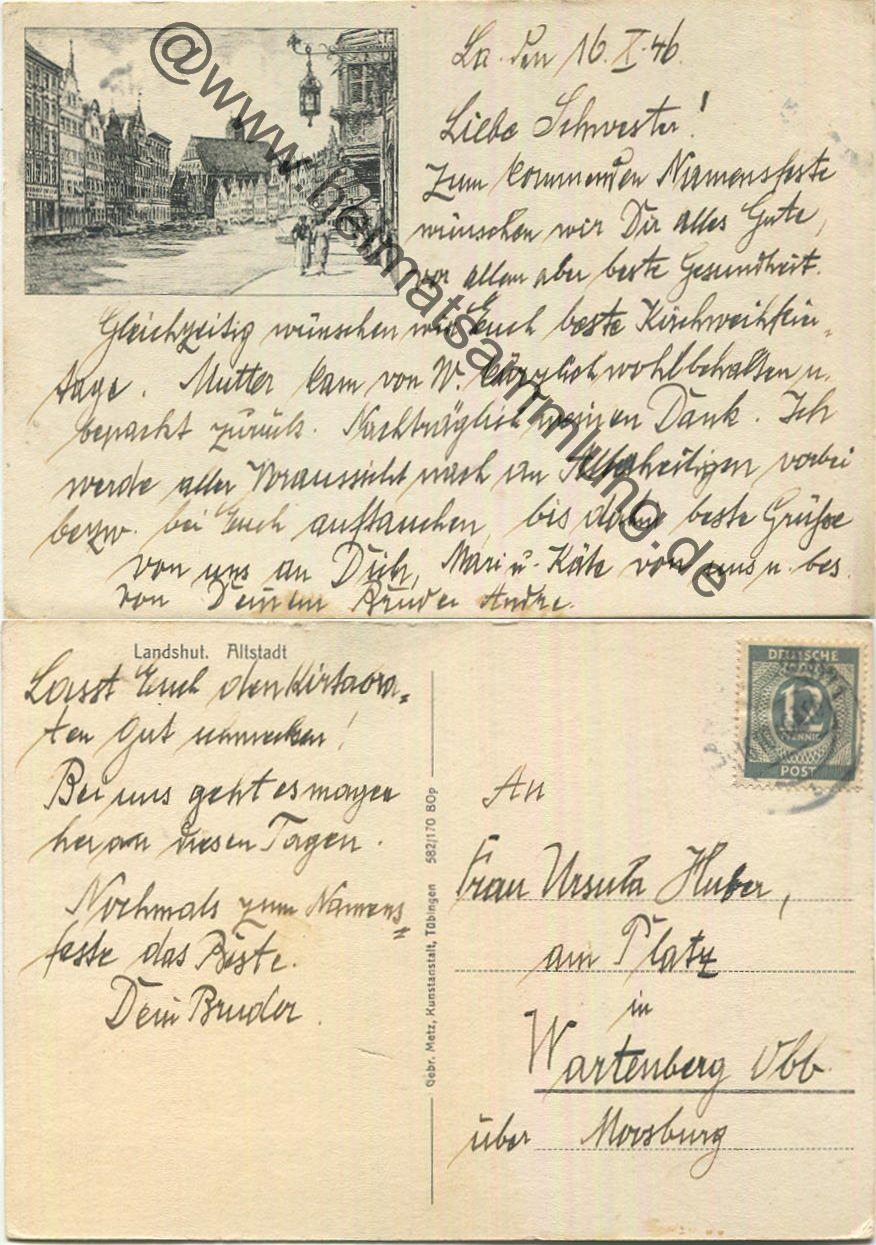 La. den 16.X.46.
Liebe Schwester!
Zum kommenden Namensfeste
wünschen wir Dir alles Gute,
vor allem aber beste Gesundheit.
Gleichzeitig wünschen wir Euch beste Kirchweihfeier-
tage. Mutter kam von W. kürzlich wohlbehalten u.
bepackt zurück. Nachträglich meinen Dank. Ich
werde aller Voraussicht nach an Allerheiligen vorbei
bezw. bei Euch auftauchen, bis dahin beste Grüße
von uns an Dich, Mari u. Käte von uns u. bes.
von Deinem Bruder Andre.
@www.heimatsammlung.de
Landshut. Altstadt
Lasst Euch den Kirtabra-
ten gut schmecken!
Bei uns geht es mager
her an diesen Tagen.
Nochmals zum Namens=
feste das Beste.
Dein Bruder.
Gebr. Metz, Kunstanstalt, Tübingen 582/170 BOp
DEUTSCHE
12
PFENNIG
POST
An
Frau Ursula Huber,
am Platz
in
Wartenberg Obb.
über Moosburg